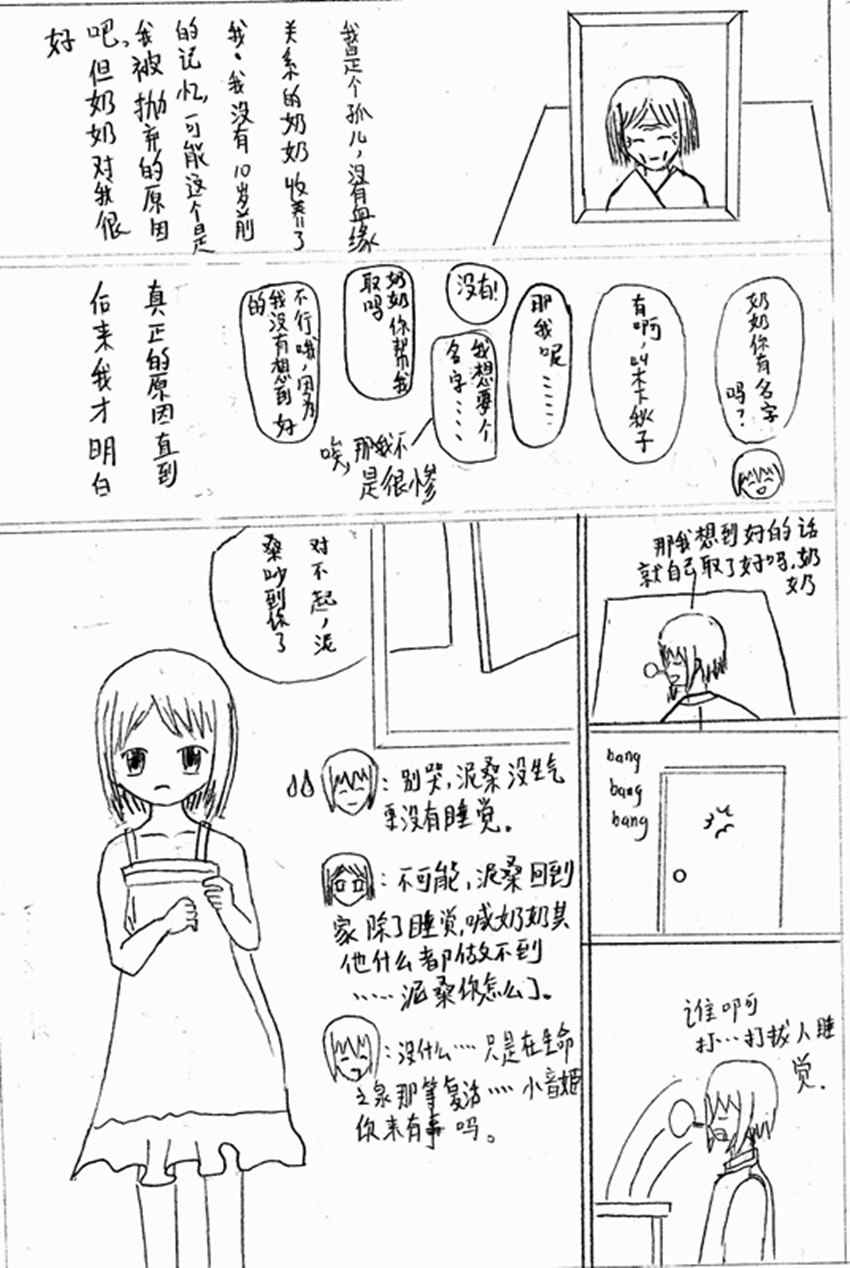 我是个孤儿，没有血缘
关系的奶奶收养了
我。我没有10岁前
的记忆，可能这个是
我被抛弃的原因
吧，但奶奶对我很
好
奶奶你有名字
吗？
有啊，叫木下秋子
那我呢……
没有！
我想要个
名字……
唉，那我不
是很惨
奶奶你帮我
取吗
不行哦，因为
我没有想到好
的
真正的原因直到
后来我才明白
那我想到好的话
就自己取了好吗，奶
奶
bang
bang
bang
谁啊
打…打扰人睡
觉.
对不起，泥
桑吵到你了
：别哭，泥桑没生气
更没有睡觉。
：不可能，泥桑回到
家除了睡觉，喊奶奶其
他什么都做不到
……泥桑你怎么了。
：没什么…. 只是在生命
之泉那等复活…. 小音姬
你来有事吗。